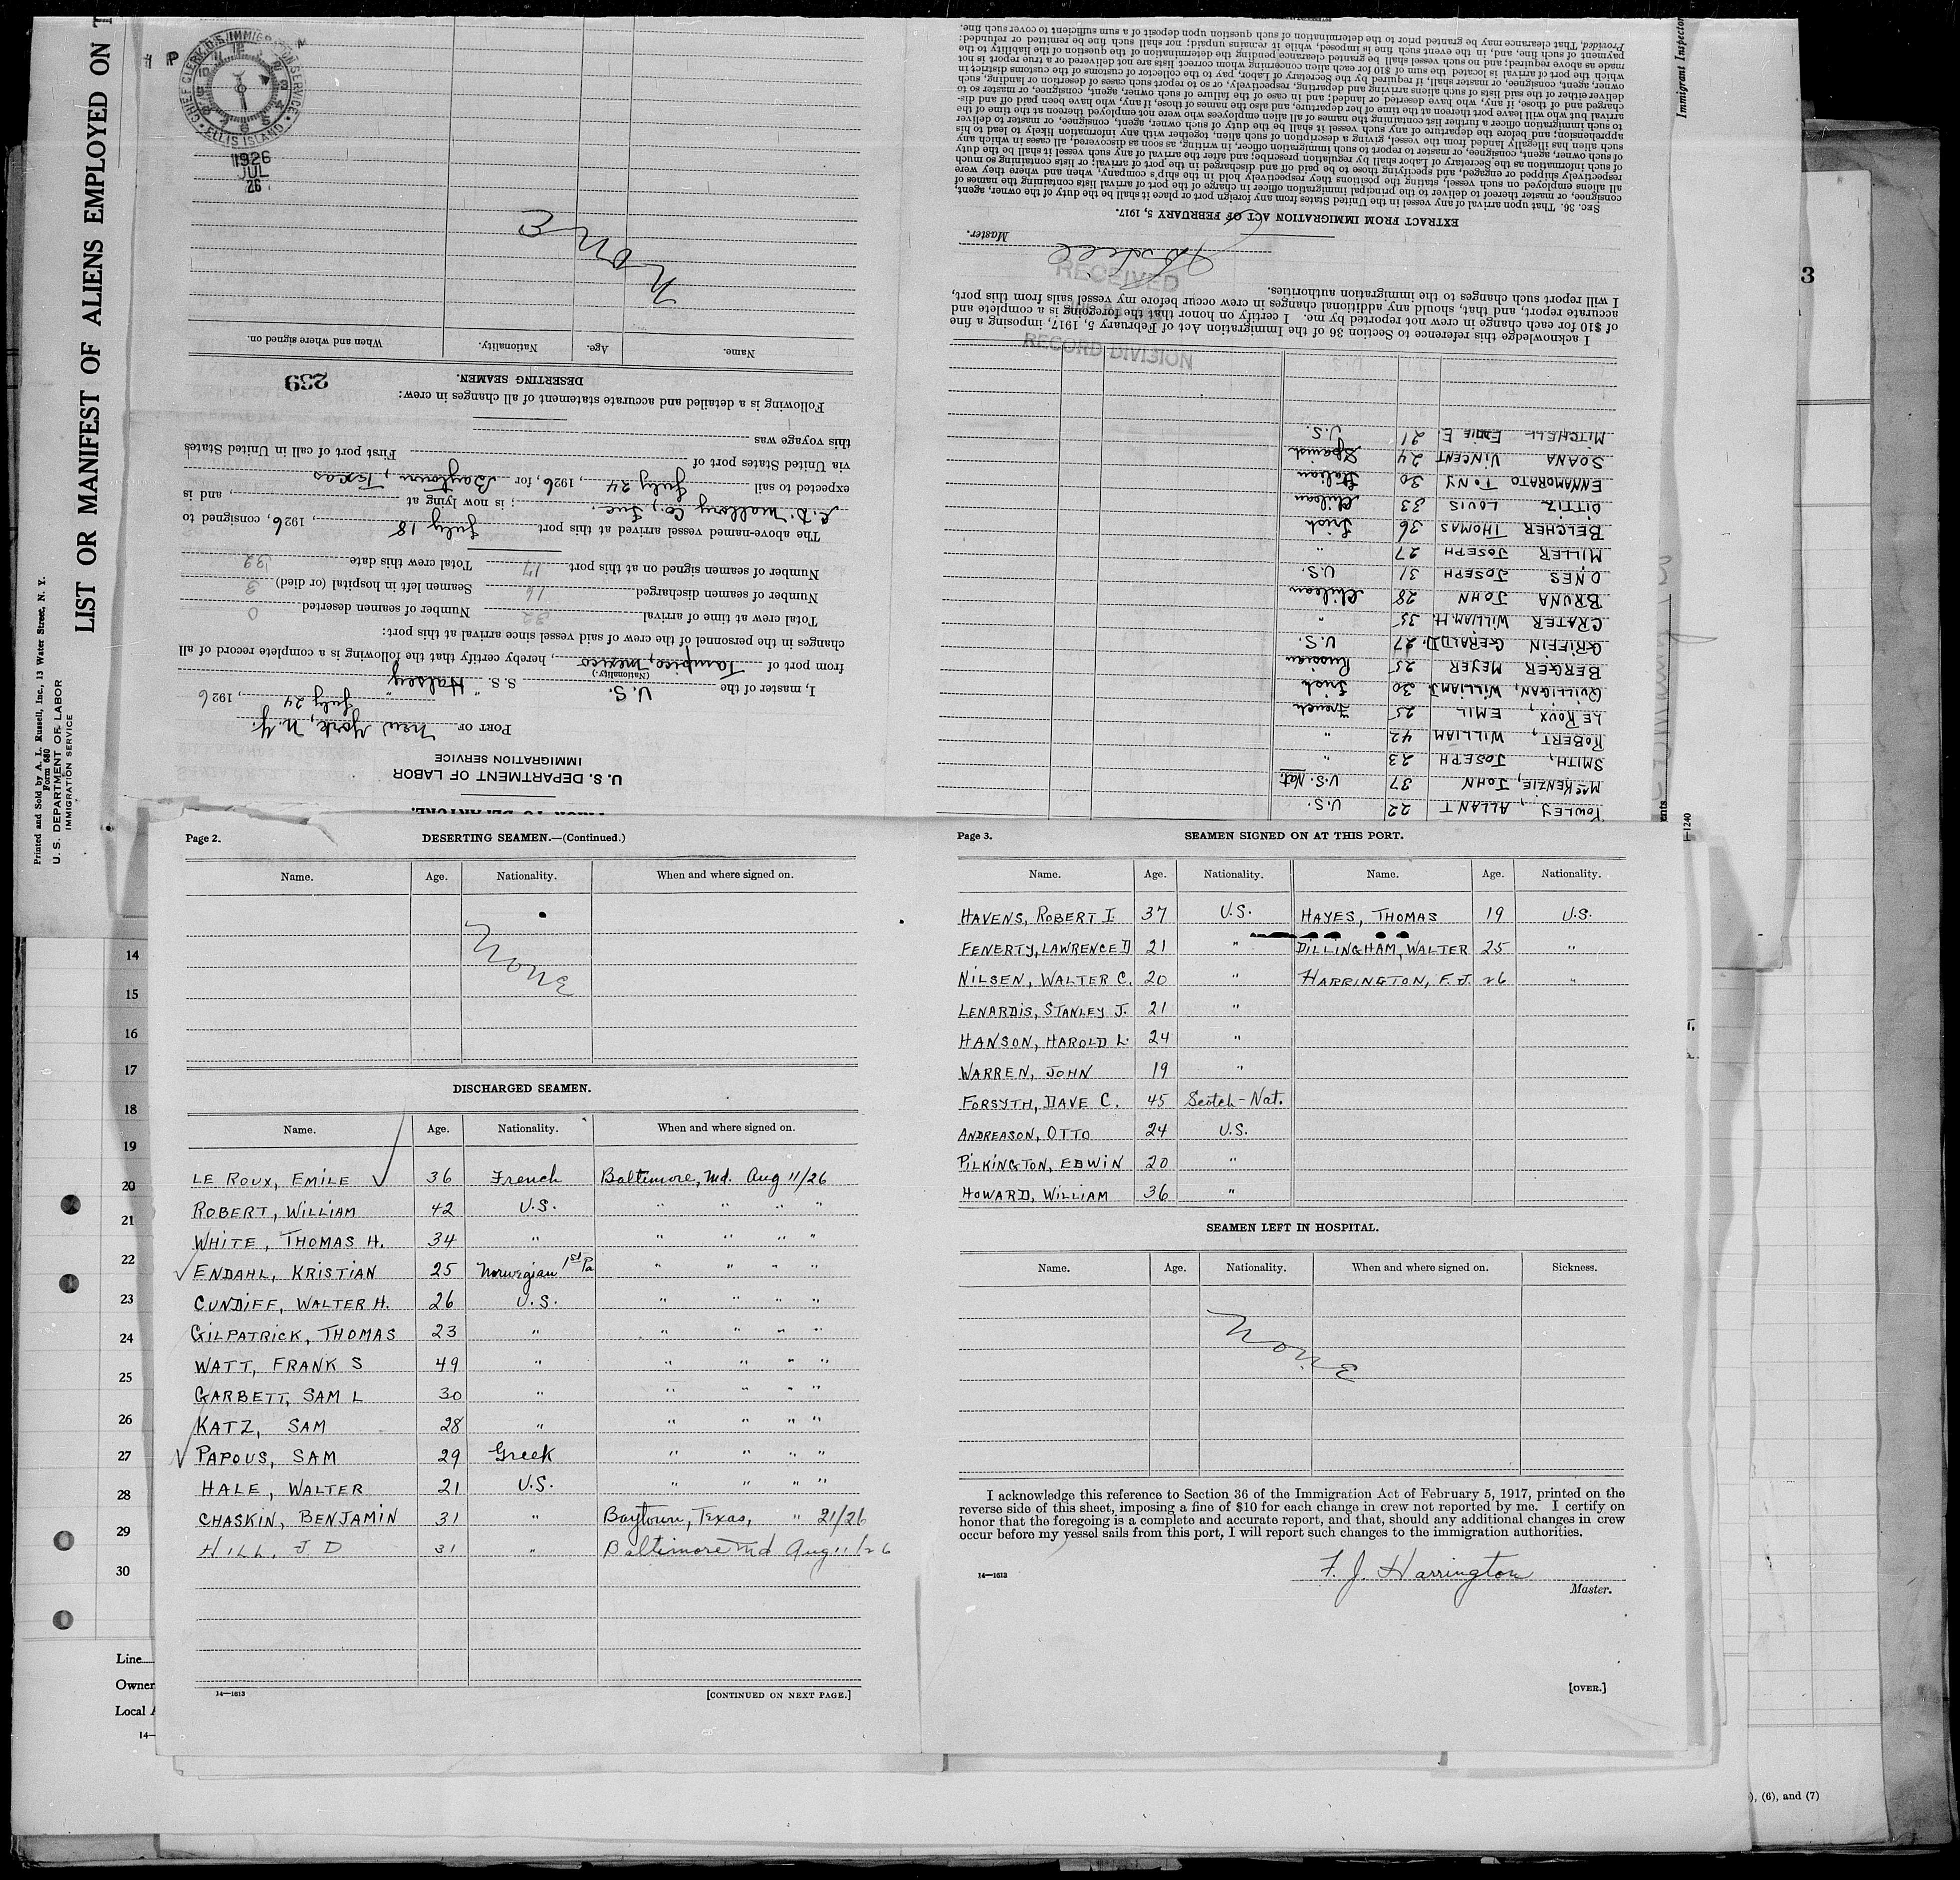 LIST OR MANIFEST OF ALIENS EMPLOYED ON T
Printed and Sold by A. L. Russell, Inc., 13 Water Street, N. Y.
Form 680
U. S. DEPARTMENT OF LABOR
IMMIGRATION SERVICE
U. S. DEPARTMENT OF LABOR
IMMIGRATION SERVICE
PORT OF New York, N.Y.
July 24, 1926
I, master of the U.S. S. S. "Halsey"
(Nationality.)
from port of Tampico, Mexico, hereby certify that the following is a complete record of all
changes in the personnel of the crew of said vessel since arrival at this port:
Total crew at time of arrival 32 Number of seamen deserted 0
Number of seamen discharged 16 Seamen left in hospital (or died) 3
Number of seamen signed on at this port 17 Total crew this date 32
The above-named vessel arrived at this port July 18, 1926, consigned to
C. D. Mallory Co., Inc.; is now lying at , and is
expected to sail July 24, 1926, for Baytown, Texas
via United States port of First port of call in United States
this voyage was
Following is a detailed and accurate statement of all changes in crew:
239
DESERTING SEAMEN.
Name. Age. Nationality. When and where signed on.
None
CHIEF CLERK U.S. IMMIGRATION SERVICE
ELLIS ISLAND
1926
JUL
26
YOWLEY, ALLANT 22 U.S.
McKENZIE, JOHN 37 U.S. Nat.
SMITH, JOSEPH 23 "
ROBERT, WILLIAM 42 "
LE ROUX, EMIL 25 French
QUILLIGAN, WILLIAM J. 30 Irish
BERGER MEYER 25 Russian
GRIFFIN GERALD D. 27 U.S.
CRATER WILLIAM H. 35 "
BRUNA JOHN 28 Chilean
O'NES JOSEPH 31 U.S.
MILLER JOSEPH 27 "
BELCHER THOMAS 36 Irish
DITTIZ LOUIS 33 Chilean
ENNAMORATO TONY 30 Italian
SOANA VINCENT 24 Spanish
MITCHELL EDDIE E. 21 U.S.
I acknowledge this reference to Section 36 of the Immigration Act of February 5, 1917, imposing a fine
of $10 for each change in crew not reported by me. I certify on honor that the foregoing is a complete and
accurate report, and that, should any additional changes in crew occur before my vessel sails from this port,
I will report such changes to the immigration authorities.
RECEIVED
RECORD DIVISION
Master.
EXTRACT FROM IMMIGRATION ACT OF FEBRUARY 5, 1917.
SEC. 36. That upon arrival of any vessel in the United States from any foreign port or place it shall be the duty of the owner, agent,
consignee, or master thereof to deliver to the principal immigration officer in charge of the port of arrival lists containing the names of
all aliens employed on such vessel, stating the positions they respectively hold in the ship's company, when and where they were
respectively shipped or engaged, and specifying those to be paid off and discharged in the port of arrival; or lists containing so much
of such information as the Secretary of Labor shall by regulation prescribe; and after the arrival of any such vessel it shall be the duty
of such owner, agent, consignee, or master to report to such immigration officer, in writing, as soon as discovered, all cases in which any
such alien has illegally landed from the vessel, giving a description of such alien, together with any information likely to lead to his
apprehension; and before the departure of any such vessel it shall be the duty of such owner, agent, consignee, or master to deliver
to such immigration officer a further list containing the names of all alien employees who were not employed thereon at the time of the
arrival but who will leave port thereon at the time of her departure, and also the names of those, if any, who have been paid off and dis-
charged and of those, if any, who have deserted or landed; and in case of the failure of such owner, agent, consignee, or master so to
deliver either of the said lists of such aliens arriving and departing, respectively, or so to report such cases of desertion or landing, such
owner, agent, consignee, or master shall, if required by the Secretary of Labor, pay to the collector of customs of the customs district in
which the port of arrival is located the sum of $10 for each alien concerning whom correct lists are not delivered or a true report is not
made as above required; and no such vessel shall be granted clearance pending the determination of the question of the liability to the
payment of such fine, and, in the event such fine is imposed, while it remains unpaid; nor shall such fine be remitted or refunded:
Provided, That clearance may be granted prior to the determination of such question upon deposit of a sum sufficient to cover such fine.
Immigrant Inspector
3
Page 2. DESERTING SEAMEN.—(Continued.)
Name. Age. Nationality. When and where signed on.
None
DISCHARGED SEAMEN.
Name. Age. Nationality. When and where signed on.
LE ROUX, EMILE 36 French Baltimore, Md. Aug 11/26
ROBERT, WILLIAM 42 U.S. " " " "
WHITE, THOMAS H. 34 " " " " "
ENDAHL, KRISTIAN 25 Norwegian 1st Pa " " " "
CUNDIFF, WALTER H. 26 U.S. " " " "
GILPATRICK, THOMAS 23 " " " " "
WATT, FRANK S 49 " " " " "
GARBETT, SAM L 30 " " " " "
KATZ, SAM 28 " " " " "
PAPOUS, SAM 29 Greek " " " "
HALE, WALTER 21 U.S. " " " "
CHASKIN, BENJAMIN 31 " Baytown, Texas, " 21/26
HILL, J D 31 " Baltimore Md Aug 11/26
14—1613 [CONTINUED ON NEXT PAGE.]
Page 3. SEAMEN SIGNED ON AT THIS PORT.
Name. Age. Nationality. Name. Age. Nationality.
HAVENS, ROBERT I. 37 U.S. HAYES, THOMAS 19 U.S.
FENERTY, LAWRENCE D 21 " DILLINGHAM, WALTER 25 "
NILSEN, WALTER C. 20 " HARRINGTON, F. J. 26 "
LENARDIS, STANLEY J. 21 "
HANSON, HAROLD L. 24 "
WARREN, JOHN 19 "
FORSYTH, DAVE C. 45 Scotch-Nat.
ANDREASON, OTTO 24 U.S.
PILKINGTON, EDWIN 20 "
HOWARD, WILLIAM 36 "
SEAMEN LEFT IN HOSPITAL.
Name. Age. Nationality. When and where signed on. Sickness.
None
I acknowledge this reference to Section 36 of the Immigration Act of February 5, 1917, printed on the
reverse side of this sheet, imposing a fine of $10 for each change in crew not reported by me. I certify on
honor that the foregoing is a complete and accurate report, and that, should any additional changes in crew
occur before my vessel sails from this port, I will report such changes to the immigration authorities.
F. J. Harrington
14—1613 Master.
[OVER.]
14
15
16
17
18
19
20
21
22
23
24
25
26
27
28
29
30
Line
Owner
Local A
14—
ents
—1240
), (6), and (7)